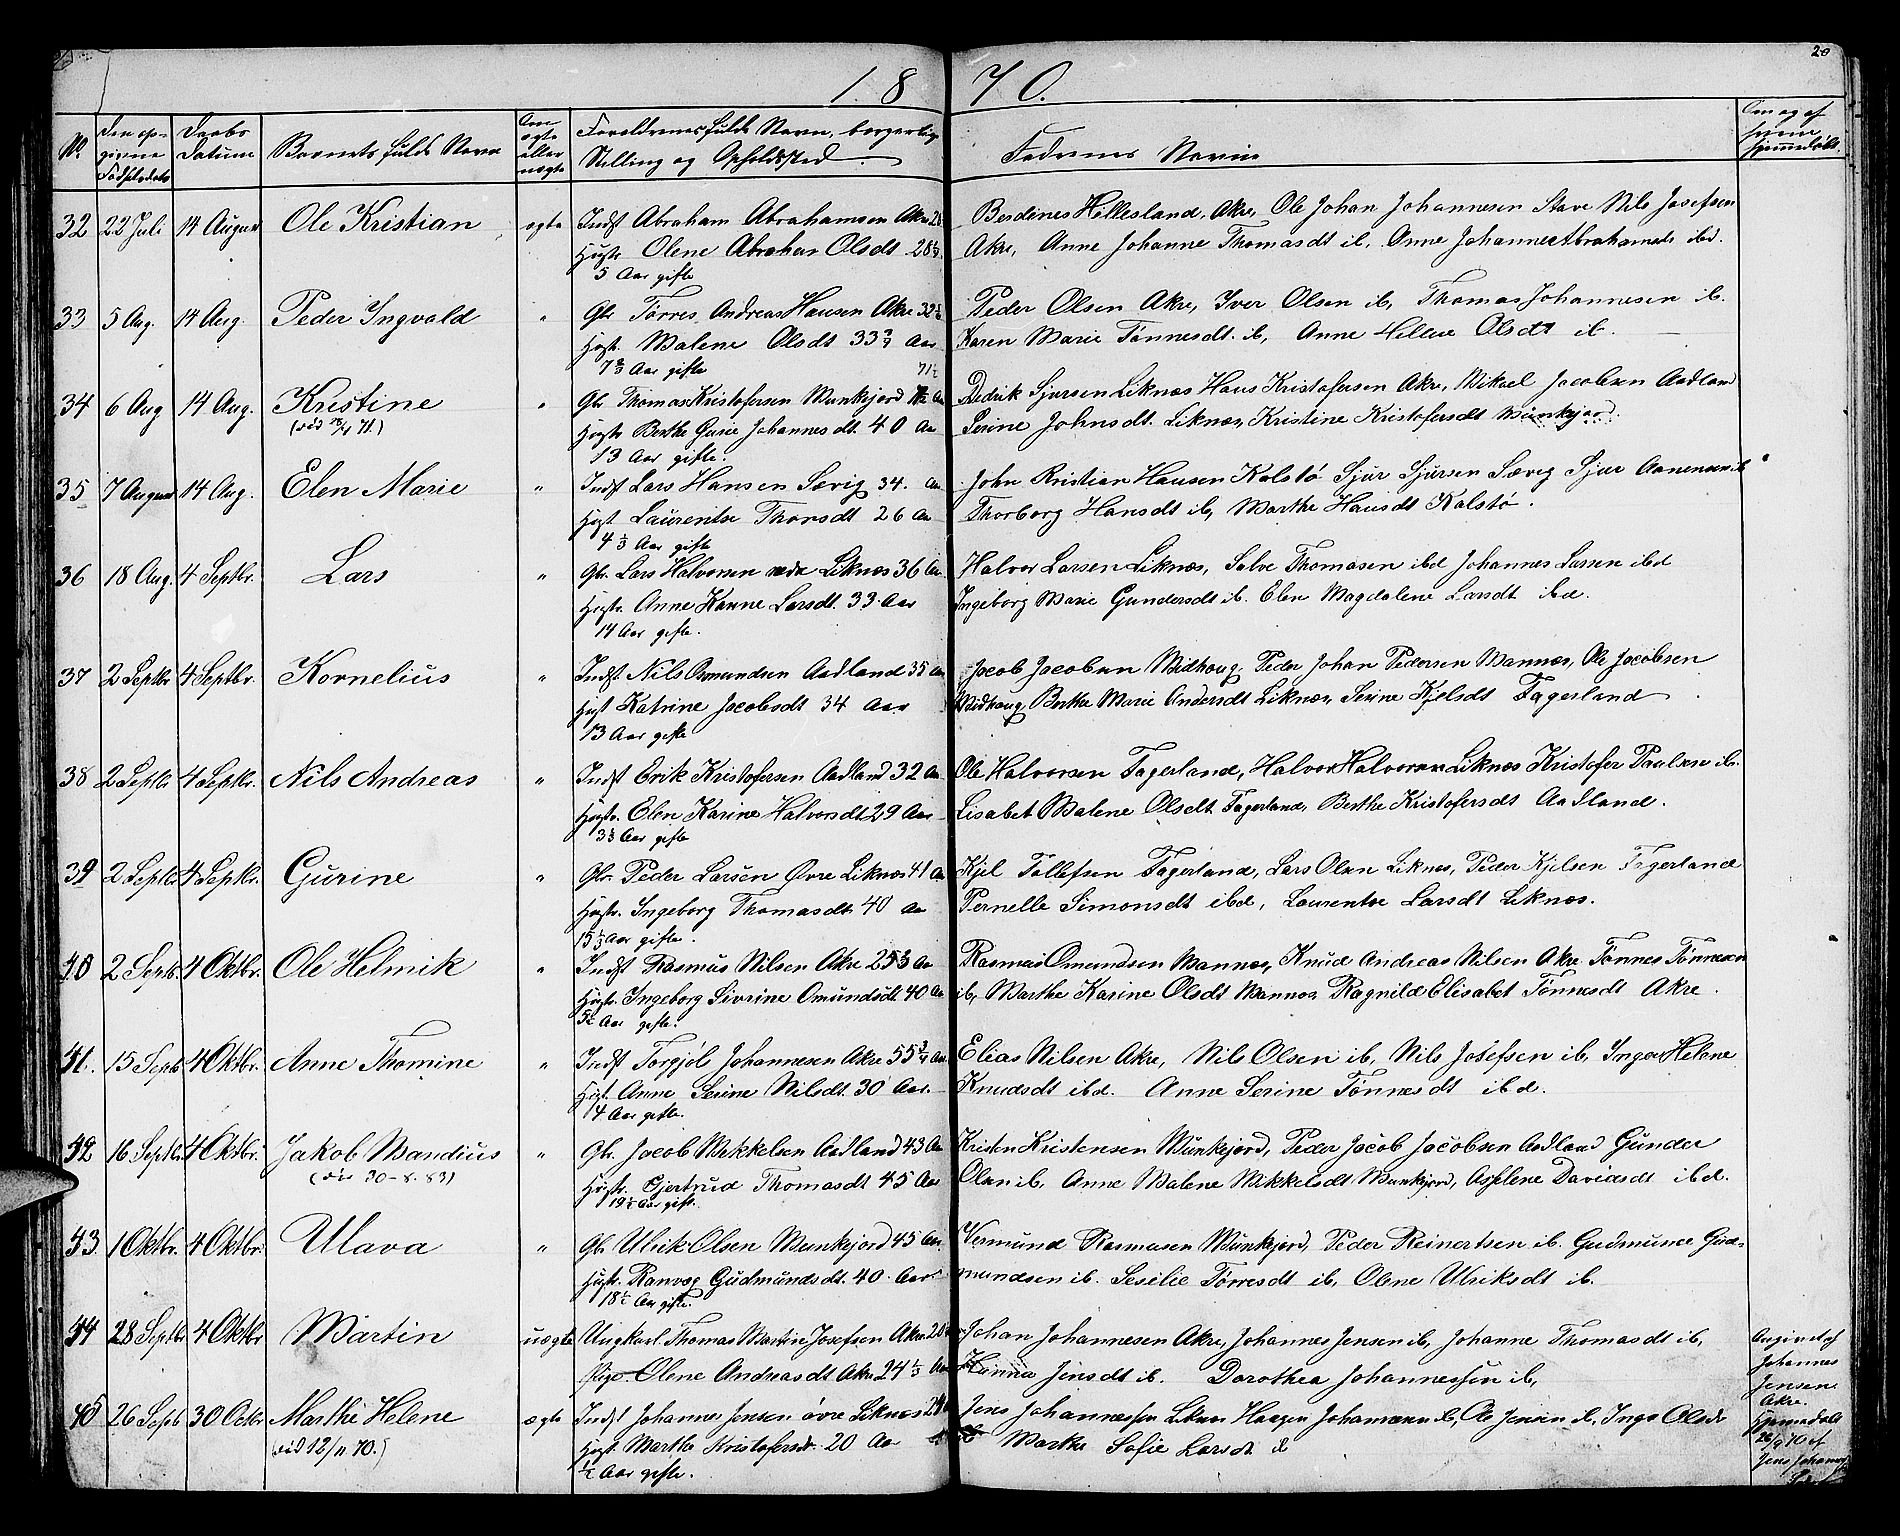 20
1870.
No. Den opgivne Fødselsdato Daabs Datum Barnets fulde Navn Om ægte eller uægte Forældrenes fulde Navn, borgerlige Stilling og Opholdsted Faddernes Navne Om og af hvem hjemmedøbt
32 22 Juli 14 August Ole Kristian ægte Indst Abraham Abrahamsen Akre 28 Berdines Hillesland, Akre, Ole Johan Johannesen Stave Nils Josefsen
Hustr Olene Olsdt 28 Akre, Anne Johanne Thomasdt ib, Anne Johanne Abrahamsdt ibd.
5 Aar gifte
33 5 Aug. 14 Aug. Peder Ingvald " Gbr Tørres Andreas Hansen Akre 32 Peder Olsen Akre, Iver Olsen ib, Thomas Johannesen ib.
Hustr. Malene Olsdt 33 Aar Karen Marie Tønnesdt. ib, Anne Helene Olsdt ib.
7 2/3 Aar gifte
34 6 Aug 14 Aug. Kristine " Gbr Thomas Kristofersen Munkejord 71½ Aar Didrik Sjursen Liknes Hans Kristofersen Akre, Mikael Jacobsen Aadland
(død 71.) Hustr Berthe Gurie Johannesdt. 40 Aar Serine Johnsdt. Liknes, Kristine Kristofersdt Munkejord.
13 Aar gifte.
35 7 August 14 Aug. Elen Marie " Indst Lars Hansen Sævig 34. Aar John Kristian Hansen Kalstø Sjur Sjursen Sævig Sjur Aanensen ib
Hust Laurentse Thorsdt 26 Aar Thorborg Hansdt ib, Marthe Hansdt Kalstø.
4 1/3 Aar gifte
36 18 Aug. 4 Septbr. Lars " Gbr. Lars Halvorsen nedre Liknes 36 Aar Halvor Larsen Liknes, Salve Thomasen ibd Johannes Larsen ibd
Hustr. Anne Hanne Larsdt. 33 Aar Ingeborg Marie Gundersdt ib. Elen Magdalene Larsdt ibd.
14 Aar gifte.
37 2 Septbr 4 Septbr. Kornelius " Indst Nils Osmundsen Aadland 35 Aar Jacob Jacobsen Midhaug, Peder Johan Pedersen Mannes, Ole Jacobsen
Hust Katrine Jacobsdt 34 Aar Midhaug Berthe Marie Andersdt Liknes, Serine Kjelsdt Fagerland
13 Aar gifte
38 2 Septbr 4 Septbr. Nils Andreas " Indst Erik Kristofersen Aadland 32 Aar Ole Halvorsen Fagerland, Halvor Halvorsen Liknes Kristofer Paulsen ib.
Hustr. Elen Karine Halvorsdt 29 Aar Lisabet Malene Olsdt. Fagerland, Berthe Kristofersdt Aadland.
3⅓ Aar gifte
39 2 Septbr 4 Septbr. Gurine " Gbr. Peder Larsen Øvre Liknes 41 Aar Kjel Tollefsen Fagerland, Lars Olsen Liknes, Peder Kjelsen Fagerland
Hustr. Ingeborg Thomasdt. 40 Aar Pernelle Simonsdt ibd, Laurentse Larsdt Liknes.
15 Aar gifte.
40 2 Septb. 4 Oktbr. Ole Helmik " Indst Rasmus Nilsen Akre 25 Aar Rasmus Omundsen Mannes, Knud Andreas Nilsen Akre Tønnes Tønnesen
Hustr. Ingeborg Sivrine Omundsdt 40 Aar ib, Marthe Karine Olsdt Mannes Ragnild Elisabet Tønnesdt Akre.
5½ Aar gifte.
41. 15 Septb 4 Oktbr. Anne Thomine " Indst Torgjøls Johannesen Akre 55¾ Aar Elias Nilsen Akre, Nils Olsen ib, Nils Josefsen ib, Inger Helene
Hust. Anne Serine Nilsdt. 30 Aar. Knudsdt ibd. Anne Serine Tønnesdt ibd.
4 Aar gifte.
42 16 Septbr 4 Oktbr. Jakob Mandius " Gbr. Jacob Mikkelsen Aadland 43 Aar Kristen Kristensen Munkejord, Peder Jacob Jacobsen Aadland Gunder
(død 30-8.83) Hustr. Gjertrud Thomasdt 45 Aar Olsen ib, Anne Malene Mikkelsdt Munkejord, Asplene Davidsdt ibd.
19½ Aar gift.
43 1 Oktbr. 4 Oktbr. Ulava " Gbr. Ulrik Olsen Munkejord 45 Aar. Vermund Rasmusen Munkejord, Peder Reinertsen ib. Gudmund Gud-
Hustr. Ranvæg Gudmundsdt. 40 Aar mundsen ib. Sesilie Tørresdt ib, Olene Ulriksdt ib.
18½ Aar gifte.
44 28 Septbr 4 Oktbr Martin uægte Ungkarl Thomas Martin Josefsen Akre 20 Johan Johannesen Akre, Johannes Jensen ib, Johanne Thomasdt ib,
Pige Olene Andreasdt Akre 24⅓ Aar Hanna Jensdt ib. Dorothea Johannessen ib,
Angivet af Johannes Jensen Akre.
45 26 Septb 30 Octbr Marthe Helene ægte Indst Johannes Jensen øvre Liknes 24 Jens Johannessen Liknes Haagen Johannesen ib, Ole Jensen ib, Inga Olsdt
(død 12/11 70.) Hust Marthe Kristofersdt. 20 Aar Marthe Sofie Larsdt ib
½ Aar gifte.
Hjemmedøbt 26/9 70 af Jens Johannes